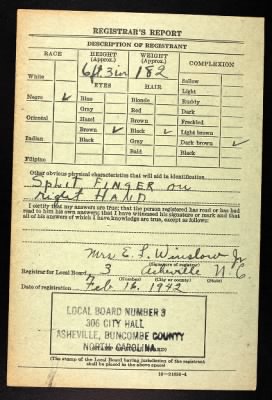 REGISTRAR'S REPORT
DESCRIPTION OF REGISTRANT
RACE HEIGHT (Approx.) WEIGHT (Approx.) COMPLEXION
White 6 ft. 3 in 182 Sallow
EYES HAIR Light
Negro ✓ Blue Blonde Ruddy
Gray Red Dark
Oriental Hazel Brown Freckled
Brown ✓ Black ✓ Light brown
Indian Black Gray Dark brown ✓
Bald Black
Filipino
Other obvious physical characteristics that will aid in identification
SPLIT FINGER on
right HAND
I certify that my answers are true; that the person registered has read or has had
read to him his own answers; that I have witnessed his signature or mark and that
all of his answers of which I have knowledge are true, except as follows:
Mrs E. L. Winslow Jr
(Signature of registrar)
Registrar for Local Board 3 Asheville N.C.
(Number) (City or county) (State)
Date of registration Feb 16, 1942
LOCAL BOARD NUMBER 3
306 CITY HALL
ASHEVILLE, BUNCOMBE COUNTY
NORTH CAROLINA
(The stamp of the Local Board having jurisdiction of the registrant
shall be placed in the above space)